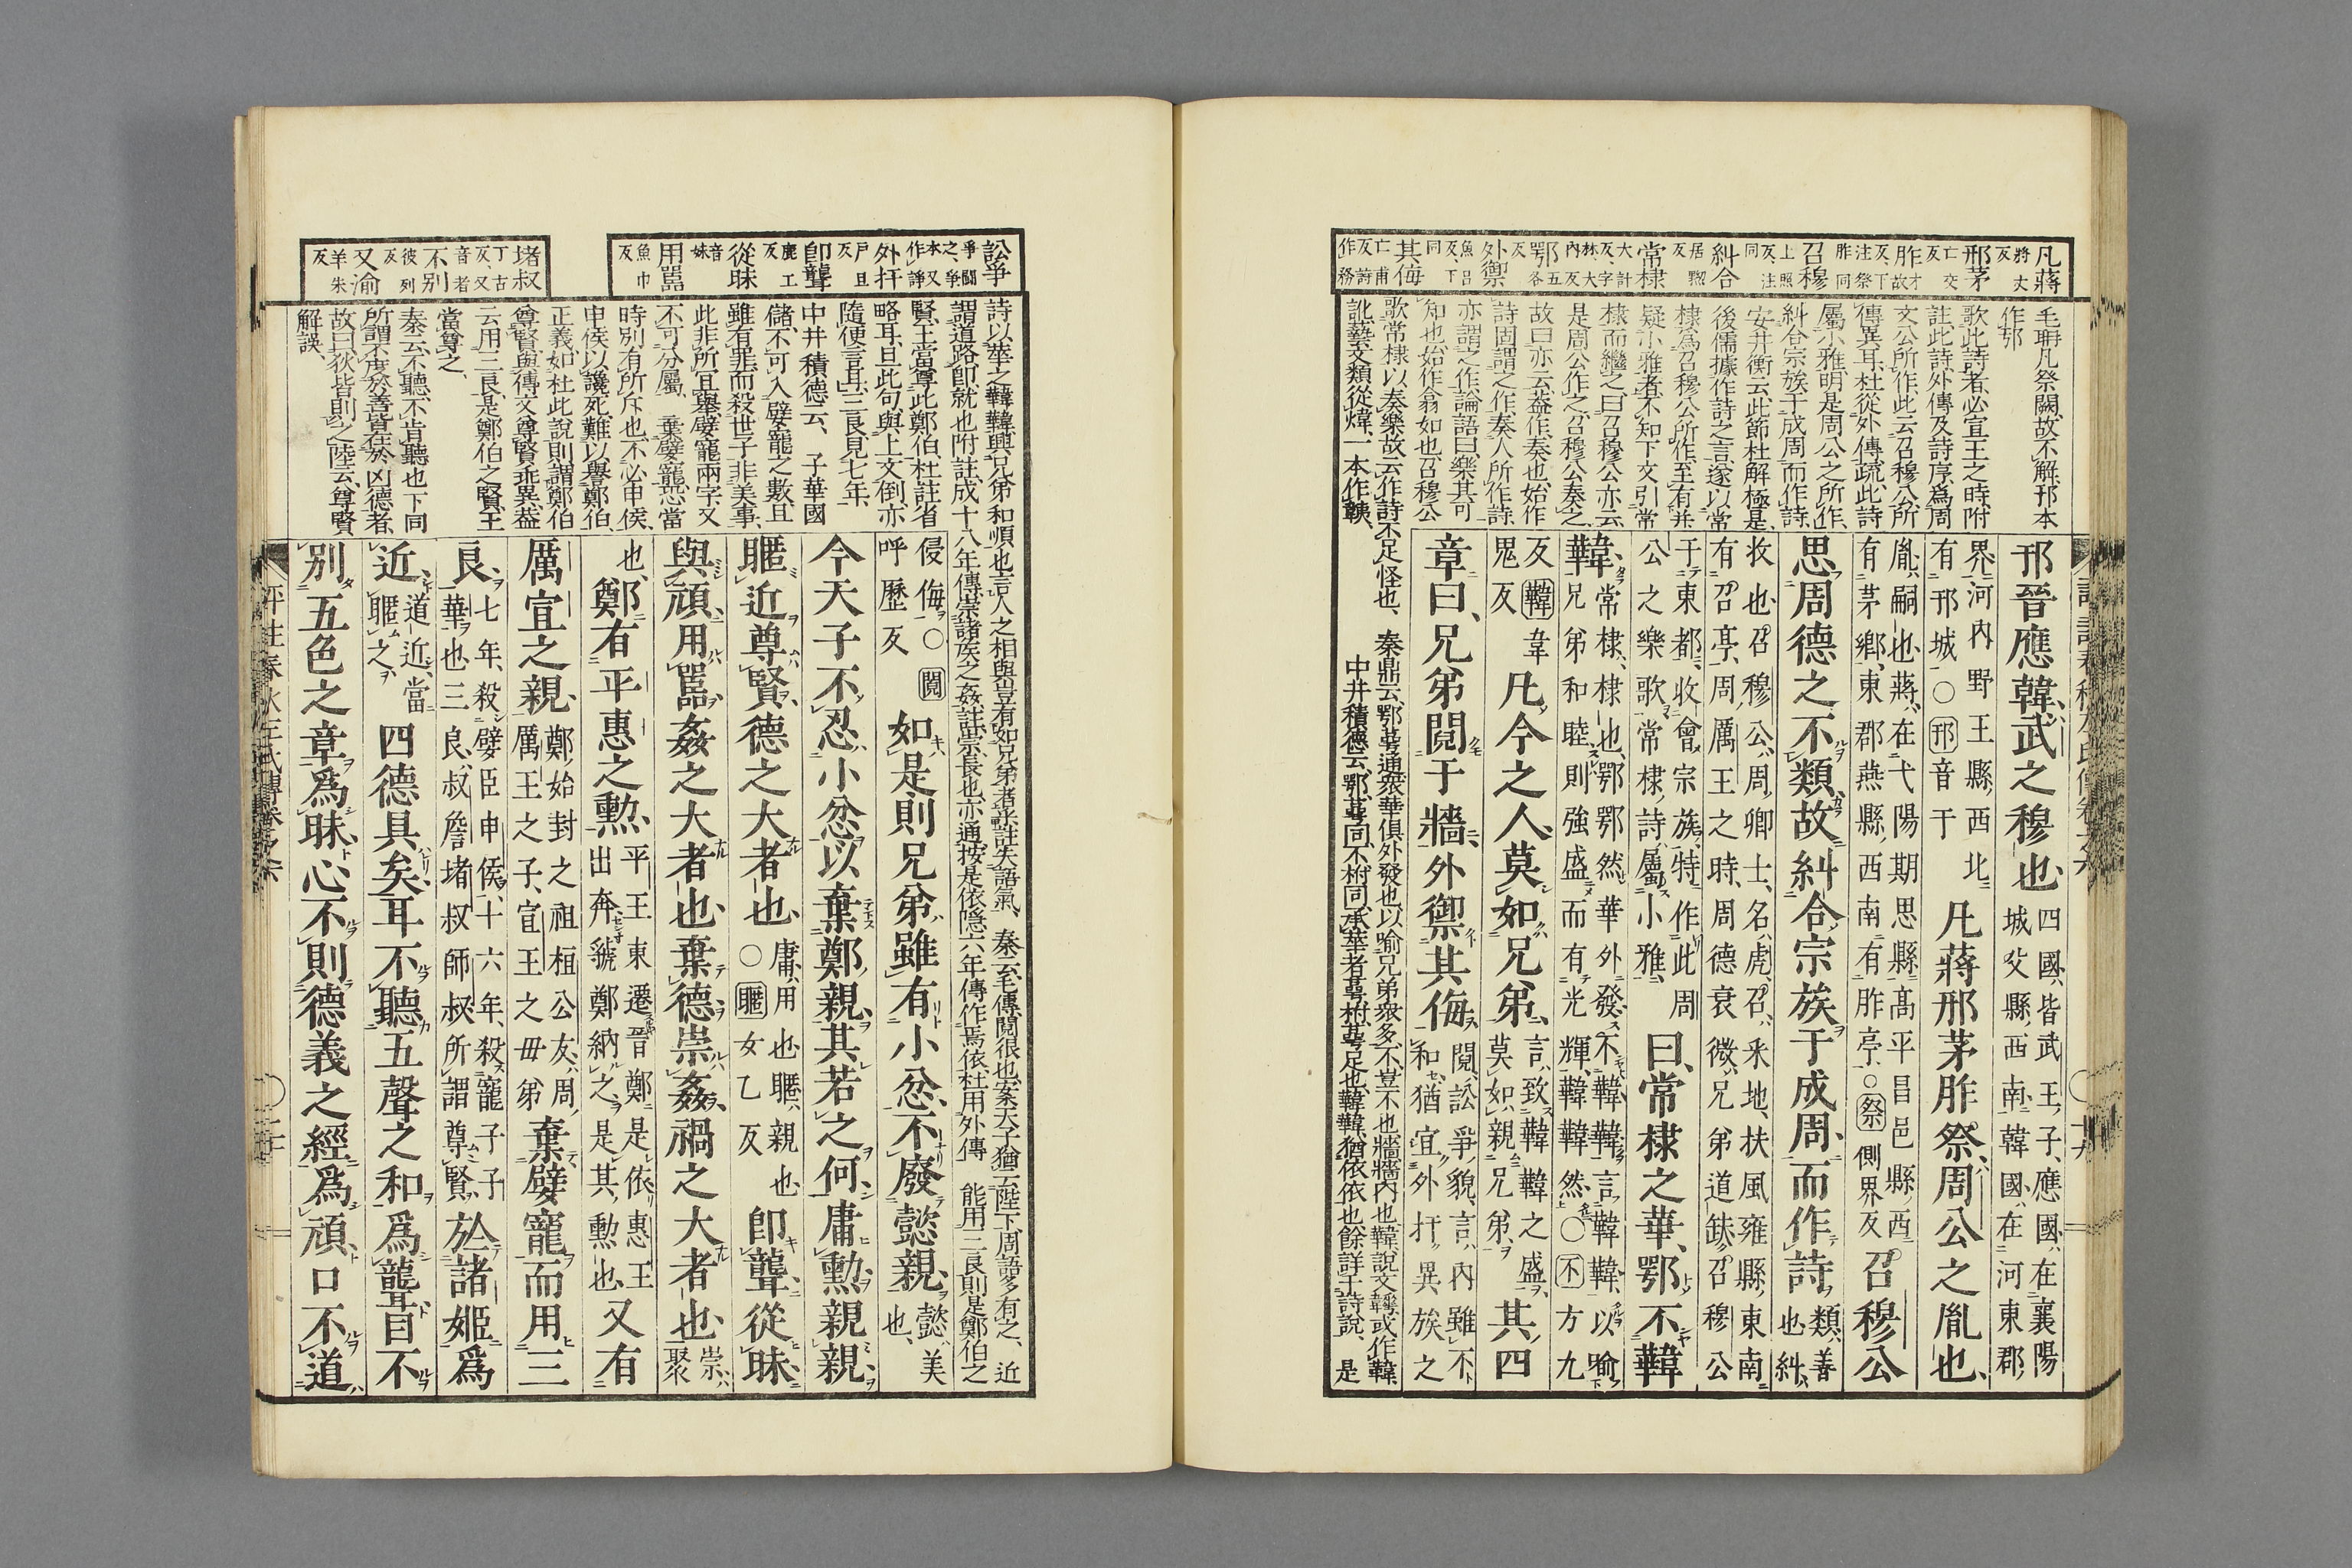 凡蔣
將丈
反
邢茅
亡交
反
胙
才故
反下
注祭
胙同
召穆
上照
反注
同
糾合
居黝
反
常棣
大計
反字
林大
内反
鄂
五各
反
外禦
魚呂
反下
同
其侮
亡甫
反詩
作務
毛聃凡祭闕故不解邘本
作邗
歌此詩者必宣王之時附
註此詩外傳及詩序爲周
文公所作此云召穆公所
傳異耳杜從外傳疏此詩
屬小雅明是周公之所作
糾合宗族于成周而作詩
安井衡云此節杜解極是
後儒據作詩之言遂以常
棣爲召穆公所作至有并
疑小雅者不知下文引常
棣而繼之曰召穆公亦云
是周公作之召穆公奏之
故曰亦云蓋作奏也始作
詩固謂之作奏人所作詩
亦謂之作論語曰樂其可
知也始作翕如也召穆公
歌常棣以奏樂故云作詩不足怪也 秦鼎云鄂萼通衆華俱外發也以喻兄弟衆多不豈不也牆牆内也韡說文韡或作韡
訛藝文類從煒一本作韡 中井積德云鄂萼同不柎同承華者萼柎萼足也韡韡猶依依也餘詳于詩說 是
邘晉應韓武之穆也
四國皆武王子應國在襄陽
城父縣西南韓國在河東郡
界河内野王縣西北
有邘城○邘音于
凡蔣邢茅胙祭周公之胤也
胤嗣也蔣在弋陽期思縣高平昌邑縣西
有茅鄉東郡燕縣西南有胙亭○祭側界反
召穆公
思周德之不類故糾合宗族于成周而作詩
類善
也糾
收也召穆公周卿士名虎召采地扶風雍縣東南
有召亭周厲王之時周德衰微兄弟道缺召穆公
于東都收會宗族特作此周
公之樂歌常棣詩屬小雅
曰常棣之華鄂不韡
韡
常棣棣也鄂鄂然華外發不韡韡言韡韡以喻
兄弟和睦則強盛而有光輝韡韡然○不方九
反韡韋
鬼反
凡今之人莫如兄弟
言致韡韡之盛
莫如親兄弟
其四
章曰兄弟鬩于牆外禦其侮
鬩訟爭貌言内雖不
和猶宜外扞異族之
訟爭
爭鬪
之爭
本又
作諍
外扞
戸旦
反
卽聾
鹿工
反
從昧
音
妹
用嚚
魚巾
反
堵叔
丁古
反又
音者
不別
彼列
反
又渝
羊朱
反
詩以華之韡韡興兄弟和順也言人之相與豈有如兄弟者乎註失語氣 秦云毛傳鬩很也案天子猶云陛下周語多有之 近
謂道路卽就也附註成十八年傳崇諸侯之姦註崇長也亦通按是依隱六年傳作焉依杜用外傳 能用三良則是鄭伯之
賢王當尊此鄭伯杜註省
略耳且此句與上文倒亦
隨便言耳三良見七年
中井積德云子華國
儲不可入嬖寵之數且
雖有罪而殺世子非美事
此非所宜舉嬖寵兩字又
不可分屬 棄嬖寵當
時別有所斥也不必申侯
申侯以讒死難以譽鄭伯
正義如杜此說則謂鄭伯
尊賢與傳文尊賢乖異蓋
云用三良是鄭伯之賢王
當尊之
秦云不聽不肯聽也下同
所謂不度於善皆在於凶德者
故曰狄皆則之陸云尊賢
解誤
侵侮○鬩
呼歷反
如是則兄弟雖有小忿不廢懿親
懿美
也
今天子不忍小忿以棄鄭親其若之何庸勲親親
暱近尊賢德之大者也
庸用也暱親也
○暱女乙反
卽聾從昧
與頑用嚚姦之大者也棄德崇姦禍之大者也
崇
聚
也
鄭有平惠之勲
平王東遷晉鄭是依惠王
出奔虢鄭納之是其勲也
又有
厲宣之親
鄭始封之祖桓公友周
厲王之子宣王之母弟
棄嬖寵而用三
良
七年殺嬖臣申侯十六年殺寵子子
華也三良叔詹堵叔師叔所謂尊賢
於諸姬爲
近
道近當
暱之
四德具矣耳不聽五聲之和爲聾目不
別五色之章爲昧心不則德義之經爲頑口不道